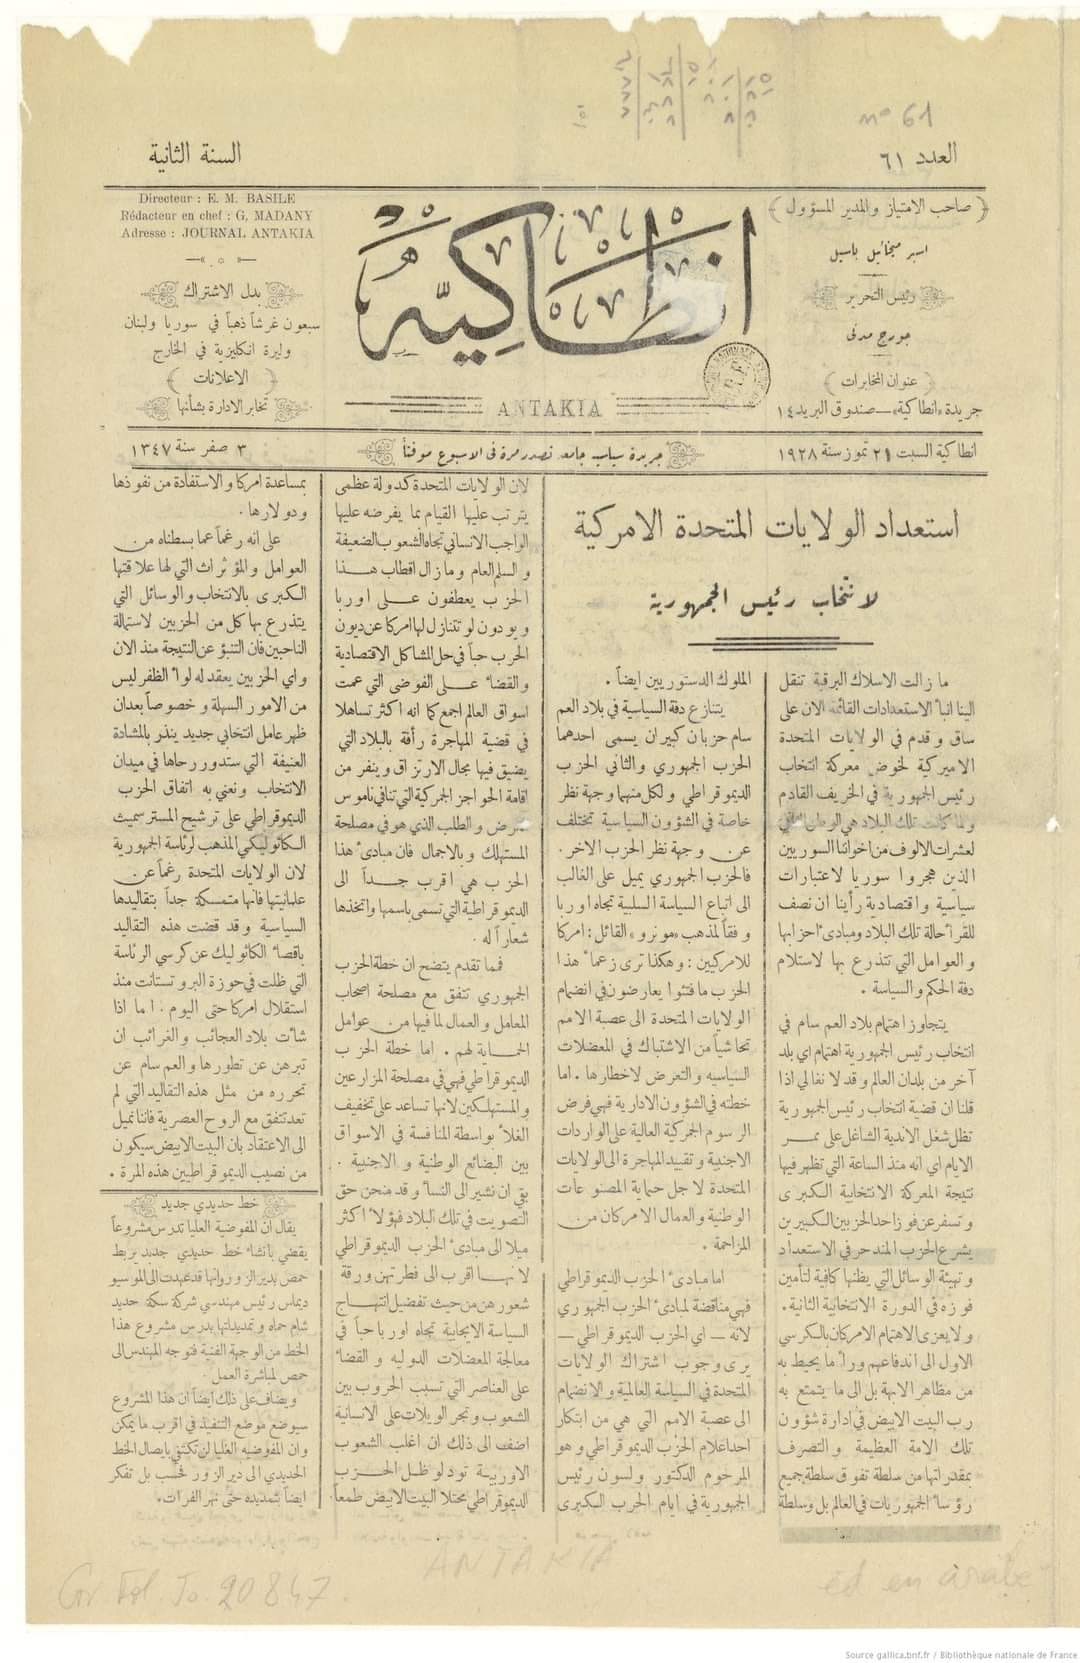 nº 61
العدد ٦١
السنة الثانية
صاحب الامتياز والمدير المسؤول
اسبر ميخائيل باسيل
رئيس التحرير
جورج مدني
عنوان المخابرات
جريدة «انطاكية» — صندوق البريد ١٤
انطاكية
ANTAKIA
Directeur : E. M. BASILE
Rédacteur en chef : G. MADANY
Adresse : JOURNAL ANTAKIA
بدل الاشتراك
سبعون غرشاً ذهباً في سوريا ولبنان
وليرة انكليزية في الخارج
الاعلانات
تخابر الادارة بشأنها
انطاكية السبت ٢١ تموز سنة ١٩٢٨
جريدة سياسية جامعة تصدر مرة في الاسبوع موقتاً
٣ صفر سنة ١٣٤٧
استعداد الولايات المتحدة الامركية
لانتخاب رئيس الجمهورية
ما زالت الاسلاك البرقية تنقل
الينا انبأ الاستعدادات القائمة الان على
ساق وقدم في الولايات المتحدة
الاميركية لخوض معركة انتخاب
رئيس الجمهورية في الخريف القادم
ولما كانت تلك البلاد هي الوطن الثاني
لعشرات الالوف من اخواننا السوريين
الذين هجروا سوريا لاعتبارات
سياسية واقتصادية رأينا ان نصف
للقرأ حالة تلك البلاد ومبادئ احزابها
والعوامل التي تتذرع بها لاستلام
دفة الحكم والسياسة .
يتجاوز اهتمام بلاد العم سام في
انتخاب رئيس الجمهورية اهتمام اي بلد
آخر من بلدان العالم وقد لا نغالي اذا
قلنا ان قضية انتخاب رئيس الجمهورية
تظل شغل الاندية الشاغل على ممر
الايام اي انه منذ الساعة التي تظهر فيها
نتيجة المعركة الانتخابية الكبرى
وتسفر عن فوز احد الحزبين الكبيرين
يشرع الحزب المندحر في الاستعداد
وتهيئة الوسائل التي يظنها كافية لتأمين
فوزه في الدورة الانتخابية الثانية .
ولا يعزى الاهتمام الامركان بالكرسي
الاول الى اندفاعهم ورأ ما يحيط به
من مظاهر الابهة بل الى ما يتمتع به
رب البيت الابيض في ادارة شؤون
تلك الامة العظيمة والتصرف
بمقدراتها من سلطة تفوق سلطة جميع
رؤسأ الجمهوريات في العالم بل وسلطة
الملوك الدستوريين ايضاً .
يتنازع دفة السياسية في بلاد العم
سام حزبان كبيران يسمى احدهما
الحزب الجمهوري والثاني الحزب
الديموقراطي ولكل منهما وجهة نظر
خاصة في الشؤون السياسية تختلف
عن وجهة نظر الحزب الاخر .
فالحزب الجمهوري يميل على الغالب
الى اتباع السياسة السلبية تجاه اوربا
وفقاً لمذهب «مونرو» القائل : امركا
للامركيين : وهكذا ترى زعمأ هذا
الحزب ما فتئوا يعارضون في انضمام
الولايات المتحدة الى عصبة الامم
تحاشياً من الاشتباك في المعضلات
السياسيه والتعرض لاخطارها . اما
خطته في الشؤون الادارية فهي فرض
الرسوم الجمركية العالية على الواردات
الاجنبية وتقييد المهاجرة الى الولايات
المتحدة لاجل حماية المصنوعات
الوطنية والعمال الامركان من
المزاحمة .
اما مبادئ الحزب الديموقراطي
فهي مناقضة لمبادئ الحزب الجمهوري
لانه — اي الحزب الديموقراطي —
يرى وجوب اشتراك الولايات
المتحدة في السياسة العالمية والانضمام
الى عصبة الامم التي هي من ابتكار
احد اعلام الحزب الديموقراطي وهو
المرحوم الدكتور ولسون رئيس
الجمهورية في ايام الحرب الكبرى
لان الولايات المتحدة كدولة عظمى
يترتب عليها القيام بما يفرضه عليها
الواجب الانساني تجاه الشعوب الضعيفة
والسلم العام وما زال اقطاب هذا
الحزب يعطفون على اوربا
ويودون لو تتنازل لها امركا عن ديون
الحرب حباً في حل المشاكل الاقتصادية
والقضأ على الفوضى التي عمت
اسواق العالم اجمع كما انه اكثر تساهلا
في قضية المهاجرة رأفة بالبلاد التي
يضيق فيها مجال الارتزاق وينفر من
اقامة الحواجز الجمركية التي تنافي ناموس
العرض والطلب الذي هو في مصلحة
المستهلك وبالاجمال فان مبادئ هذا
الحزب هي اقرب جداً الى
الديموقراطية التي تسمى باسمها واتخذها
شعاراً له .
فمما تقدم يتضح ان خطة الحزب
الجمهوري تتفق مع مصلحة اصحاب
المعامل والعمال لما فيها من عوامل
الحماية لهم . اما خطة الحزب
الديموقراطي فهي في مصلحة المزارعين
والمستهلكين لانها تساعد على تخفيف
الغلأ بواسطة المنافسة في الاسواق
بين البضائع الوطنية والاجنبية .
بقي ان نشير الى النسأ وقد منحن حق
التصويت في تلك البلاد فهؤلأ اكثر
ميلا الى مبادئ الحزب الديموقراطي
لانها اقرب الى فطرتهن ورقة
شعورهن من حيث تفضيل انتهاج
السياسة الايجابية تجاه اوربا حباً في
معالجة المعضلات الدوليه والقضأ
على العناصر التي تسبب الحروب بين
الشعوب وتجر الويلات على الانسانية
اضف الى ذلك ان اغلب الشعوب
الاوربية تود لو ظل الحزب
الديموقراطي محتلا البيت الابيض طمعاً
بمساعدة امركا والاستفادة من نفوذها
ودولارها .
على انه رغماً عما بسطناه من
العوامل والمؤثرات التي لها علاقتها
الكبرى بالانتخاب والوسائل التي
يتذرع بها كل من الحزبين لاستمالة
الناخبين فان التنبؤ عن النتيجة منذ الان
واي الحزبين يعقد له لوأ الظفر ليس
من الامور السهلة وخصوصاً بعد ان
ظهر عامل انتخابي جديد ينذر بالمشادة
العنيفة التي ستدور رحاها في ميدان
الانتخاب ونعني به اتفاق الحزب
الديموقراطي على ترشيح المستر سميث
الكاثوليكي المذهب لرئاسة الجمهورية
لان الولايات المتحدة رغماً عن
علمانيتها فانها متمسكة جداً بتقاليدها
السياسية وقد قضت هذه التقاليد
باقصأ الكاثوليك عن كرسي الرئاسة
التي ظلت في حوزة البروتستانت منذ
استقلال امركا حتى اليوم . اما اذا
شأت بلاد العجائب والغرائب ان
تبرهن عن تطورها والعم سام عن
تحرره من مثل هذه التقاليد التي لم
تعد تتفق مع الروح العصرية فاننا نميل
الى الاعتقاد بان البيت الابيض سيكون
من نصيب الديموقراطيين هذه المرة .
خط حديدي جديد
يقال ان المفوضية العليا تدرس مشروعاً
يقضي بانشأ خط حديدي جديد يربط
حمص بدير الزور وانها قد عهدت الى الموسيو
ديماس رئيس مهندسي شركة سكة حديد
شام حماه وتمديداتها بدرس مشروع هذا
الخط من الوجهة الفنية فتوجه المهندس الى
حمص لمباشرة العمل .
ويضاف على ذلك ايضاً ان هذا المشروع
سيوضع موضع التنفيذ في اقرب ما يمكن
وان المفوضيه العليا لن تكتفي بايصال الخط
الحديدي الى دير الزور فحسب بل تفكر
ايضاً بتمديده حتى نهر الفرات .
Gr Fol. Jo. 20847.
ANTAKIA
éd en arabe
Source gallica.bnf.fr / Bibliothèque nationale de France